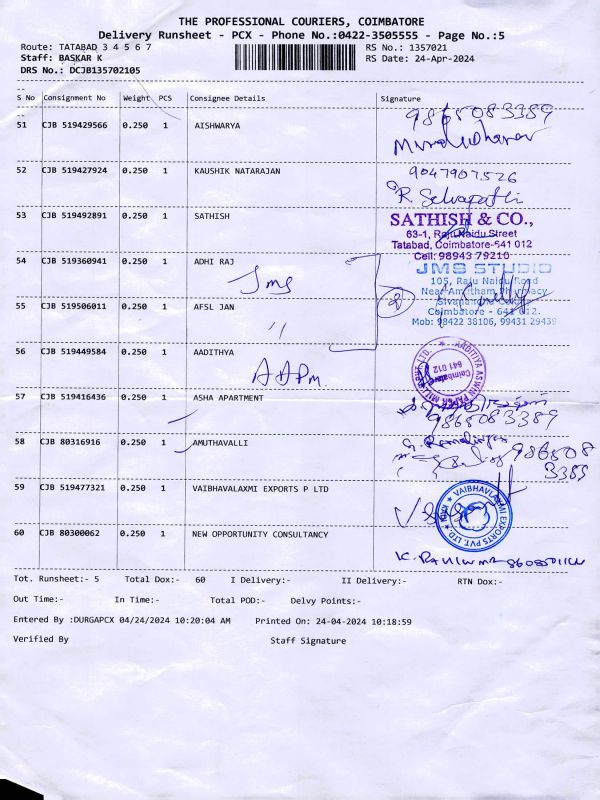 THE PROFESSIONAL COURIERS, COIMBATORE
Delivery Runsheet - PCX - Phone No.:0422-3505555 - Page No.:5
Route: TATABAD 3 4 5 6 7
RS No.: 1357021
Staff: BASKAR K
RS Date: 24-Apr-2024
DRS No.: DCJB135702105
S No Consignment No Weight PCS Consignee Details Signature
51 CJB 519429566 0.250 1 AISHWARYA
9865083389
Muralidharan
52 CJB 519427924 0.250 1 KAUSHIK NATARAJAN
9047907526
R. Selvapathi
53 CJB 519492891 0.250 1 SATHISH
SATHISH & CO.,
63-1, Raju Naidu Street
Tatabad, Coimbatore-641 012
Cell: 98943 79210
54 CJB 519360941 0.250 1 ADHI RAJ
Jms
JMS STUDIO
105, Raju Naidu Road
Near Amirtham Pharmacy
Coimbatore - 641 012.
Mob: 98422 38106, 99431 29439
2
55 CJB 519506011 0.250 1 AFSL JAN
"
56 CJB 519449584 0.250 1 AADITHYA
AAPM.
57 CJB 519416436 0.250 1 ASHA APARTMENT
9865083389
58 CJB 80316916 0.250 1 AMUTHAVALLI
986508
3389
59 CJB 519477321 0.250 1 VAIBHAVALAXMI EXPORTS P LTD
VAIBHAVLAXMI EXPORTS PVT. LTD.
60 CJB 80300062 0.250 1 NEW OPPORTUNITY CONSULTANCY
Tot. Runsheet:- 5 Total Dox:- 60 I Delivery:- II Delivery:- RTN Dox:-
Out Time:- In Time:- Total POD:- Delvy Points:-
Entered By :DURGAPCX 04/24/2024 10:20:04 AM Printed On: 24-04-2024 10:18:59
Verified By Staff Signature